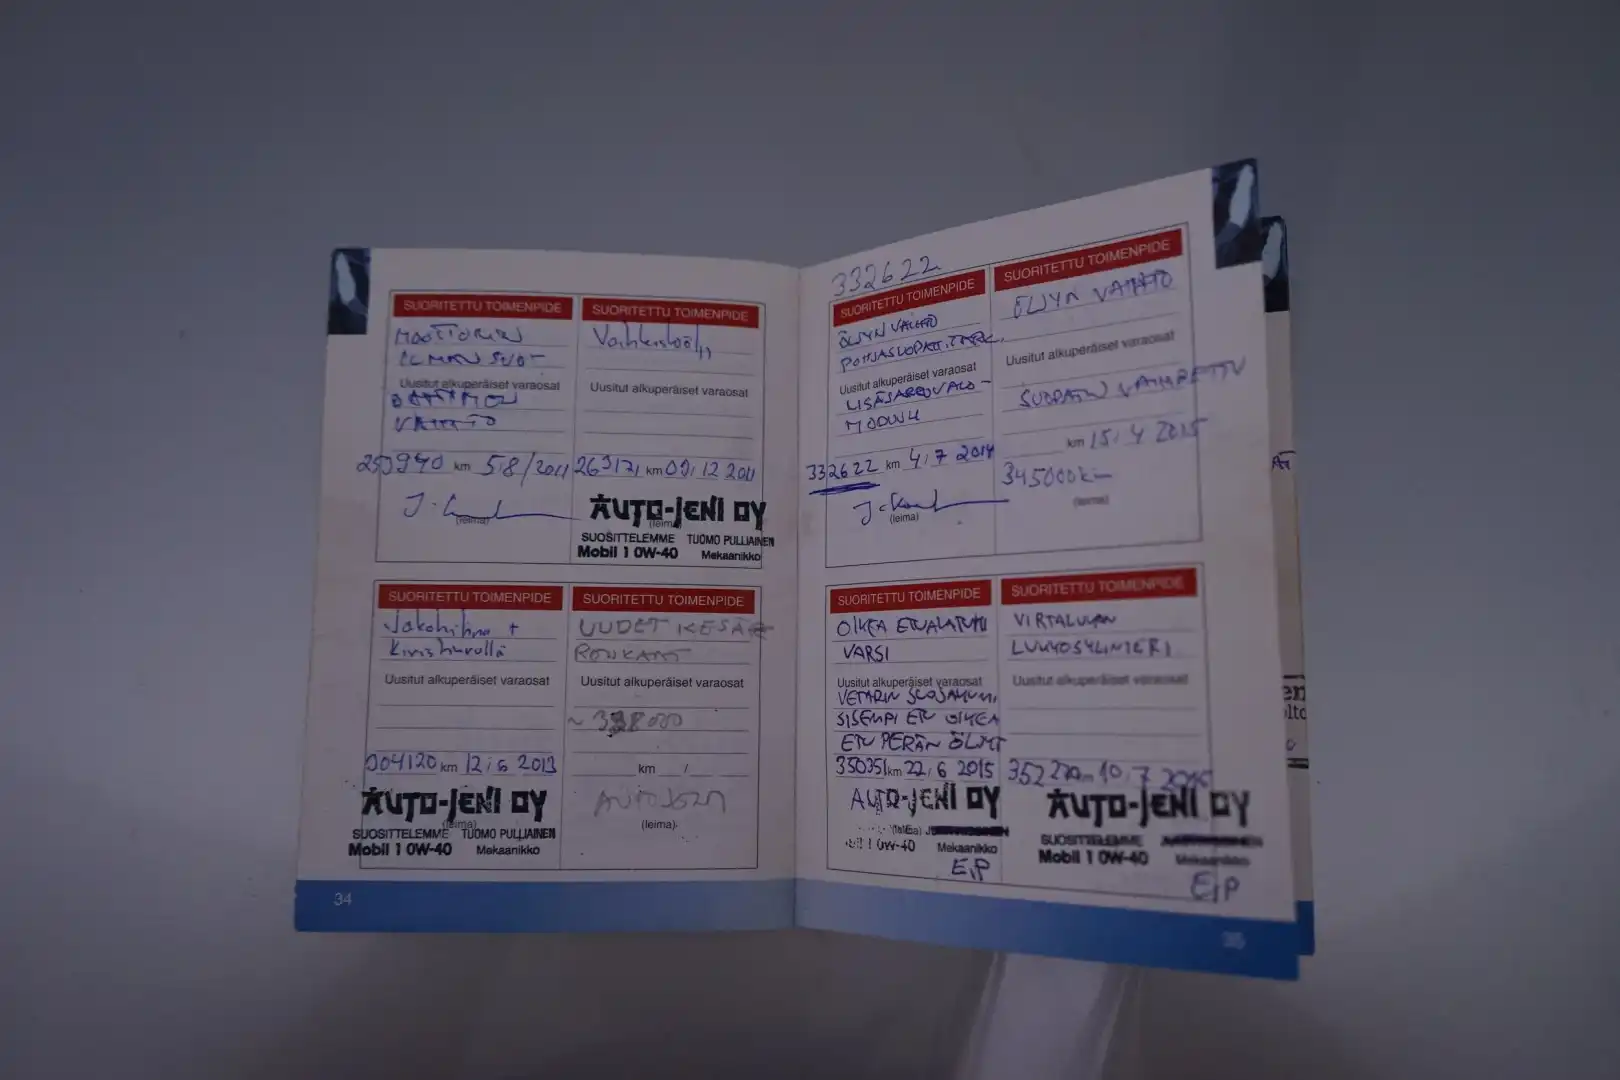 SUORITETTU TOIMENPIDE
MOOTTORIN
ILMAN SUO-
Uusitut alkuperäiset varaosat
DATTIMEN
VAIHTO
250940 km 5/8/2011
(leima)
SUORITETTU TOIMENPIDE
Vaihteistoöljy
Uusitut alkuperäiset varaosat
263171 km 09/12 2011
AUTO-JENI OY
(leima)
SUOSITTELEMME TUOMO PULLIAINEN
Mobil 1 0W-40 Mekaanikko
SUORITETTU TOIMENPIDE
Jakohihna +
Kiristysrulla
Uusitut alkuperäiset varaosat
304120 km 12/6 2013
AUTO-JENI OY
(leima)
SUOSITTELEMME TUOMO PULLIAINEN
Mobil 1 0W-40 Mekaanikko
SUORITETTU TOIMENPIDE
UUDET KESÄR
RENKAAT
Uusitut alkuperäiset varaosat
km /
(leima)
34
332622
SUORITETTU TOIMENPIDE
ÖLJYN VAIHTO
Uusitut alkuperäiset varaosat
LISÄSARJAVALO-
MODUULI
332622 km 4/7 2014
(leima)
SUORITETTU TOIMENPIDE
ÖLJYN VAIHTO
Uusitut alkuperäiset varaosat
SUODATIN VAIHDETTU
km 15/4 2015
345000km
(leima)
SUORITETTU TOIMENPIDE
OIKEA ETUALATUKI
VARSI
Uusitut alkuperäiset varaosat
VETARIN SUOJAKUMI
SISEMPI ETU OIKEA
ETU PERÄN ÖLJYT
350351km 22/6 2015
AUTO-JENI OY
(leima)
0W-40 Mekaanikko
E,P
SUORITETTU TOIMENPIDE
VIRTALUKAN
LUKKOSYLINTERI
Uusitut alkuperäiset varaosat
352270km 10/7 2015
AUTO-JENI OY
SUOSITTELEMME
Mobil 1 0W-40 Mekaanikko
E,P
35